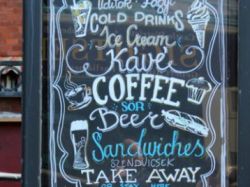 Üdítők Fagyi
COLD DRINKS
Ice Cream
Kávé
COFFEE
SÖR
Beer
Sandwiches
SZENDVICSEK
TAKE AWAY
OR STAY HERE